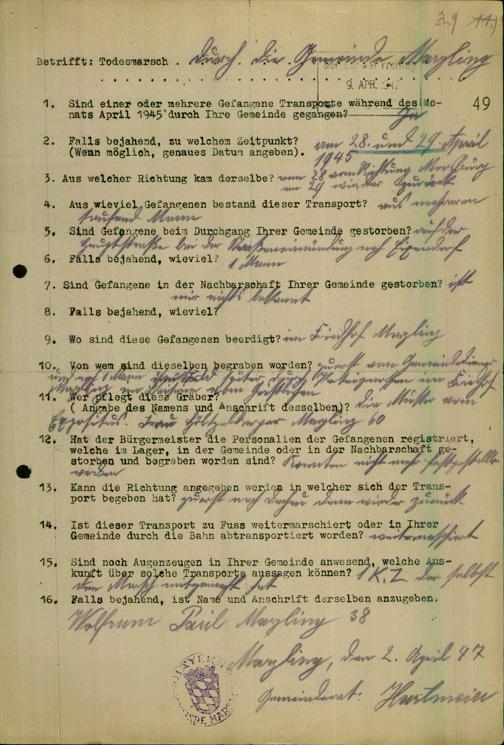 3.9
Betrifft: Todesmarsch . durch die Gemeinde Margling
9. APR. 1947
49
1. Sind einer oder mehrere Gefangene Transporte während des Mo-
nats April 1945 durch Ihre Gemeinde gegangen? Ja
2. Falls bejahend, zu welchem Zeitpunkt? am 28. und 29. April
(Wenn möglich, genaues Datum angeben). 1945
3. Aus welcher Richtung kam derselbe? vom 28 von Richtung
am 29 wieder zurück
4. Aus wieviel Gefangenen bestand dieser Transport? aus mehreren
tausend Mann
5. Sind Gefangene beim Durchgang Ihrer Gemeinde gestorben? auf der
Hauptstrasse bei der Strasseneinmündung nach
6. Falls bejahend, wieviel? 1 Mann
7. Sind Gefangene in der Nachbarschaft Ihrer Gemeinde gestorben? ist
mir nicht bekannt
8. Falls bejahend, wieviel?
9. Wo sind diese Gefangenen beerdigt? im Friedhof Margling
10. Von wem sind dieselben begraben worden? zuerst von Gemeindediener
später durch im Friedhof
Margling vom Geistlichen
11. Wer pflegt diese Gräber?
( Angabe des Namens und Anschrift desselben)? die Mutter vom
Expositus. Frau Margling 60
12. Hat der Bürgermeister die Personalien der Gefangenen registriert,
welche im Lager, in der Gemeinde oder in der Nachbarschaft ge-
storben und begraben worden sind? Konnten nicht mehr festgestellt
werden
13. Kann die Richtung angegeben werden in welcher sich der Trans-
port begeben hat? zuerst nach Dachau dann wieder zurück
14. Ist dieser Transport zu Fuss weitermarschiert oder in Ihrer
Gemeinde durch die Bahn abtransportiert worden? weitermarschiert
15. Sind noch Augenzeugen in Ihrer Gemeinde anwesend, welche Aus-
kunft über solche Transporte aussagen können? 1 K.Z. der selbst
den Marsch mitgemacht hat
16. Falls bejahend, ist Name und Anschrift derselben anzugeben.
Wolfram Paul Margling 38
Margling, den 2. April 47
Gemeinderat: Hartmeier
BAYERN